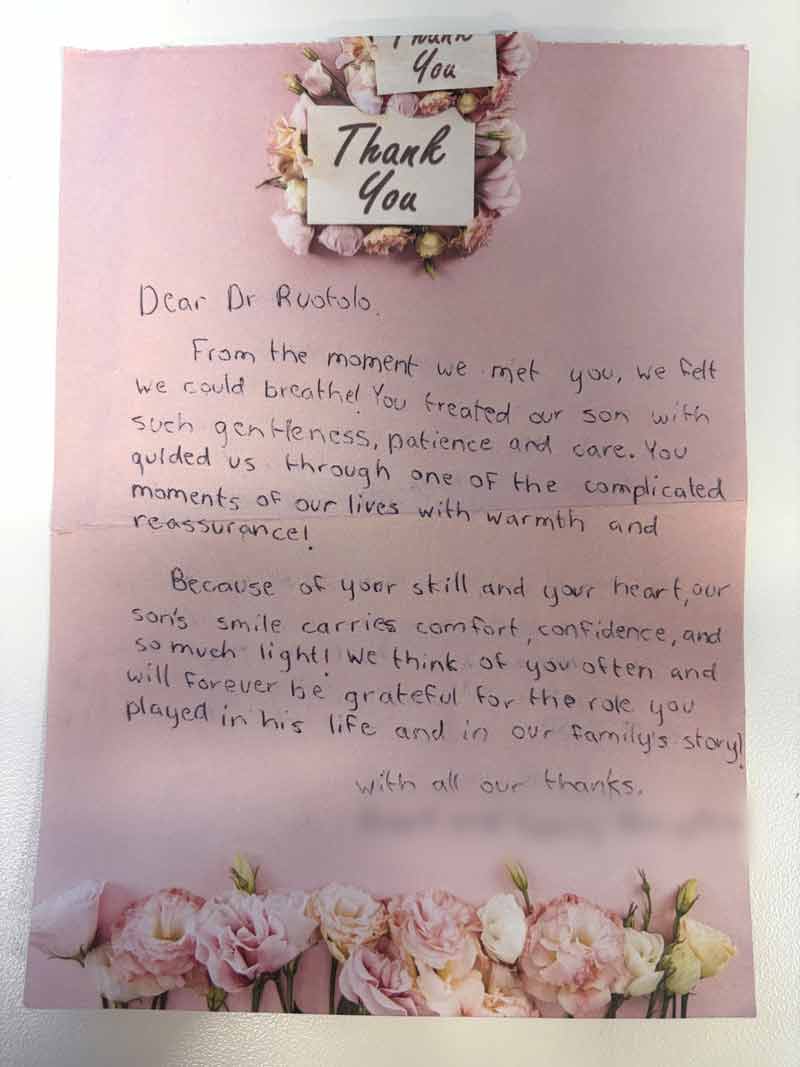 Thank
You
Thank
You
Dear Dr Ruotolo,
From the moment we met you, we felt
we could breathe! You treated our son with
such gentleness, patience and care. You
guided us through one of the complicated
moments of our lives with warmth and
reassurance!
Because of your skill and your heart, our
son's smile carries comfort, confidence, and
so much light! We think of you often and
will forever be grateful for the role you
played in his life and in our family's story!
with all our thanks.